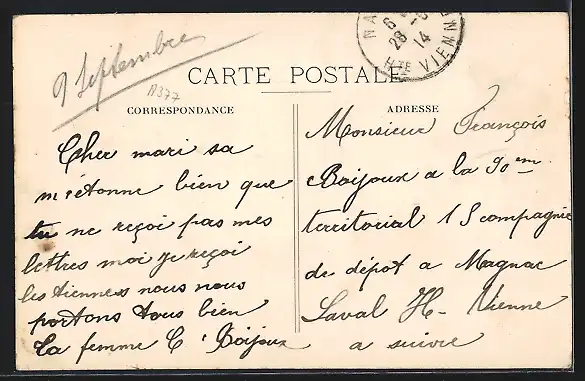 9 Septembre
A377
CARTE POSTALE
NA
28 - 8
14
Hte VIENNE
CORRESPONDANCE
Cher mari sa
m'étonne bien que
tu ne reçoi pas mes
lettres moi je reçoi
les tiennes nous nous
portons tous bien
ta femme C Boijoux
ADRESSE
Monsieur François
Boijoux a la 90em
territorial 1 S compagnie
de dépot a Magnac
Laval H- Vienne
a suivre